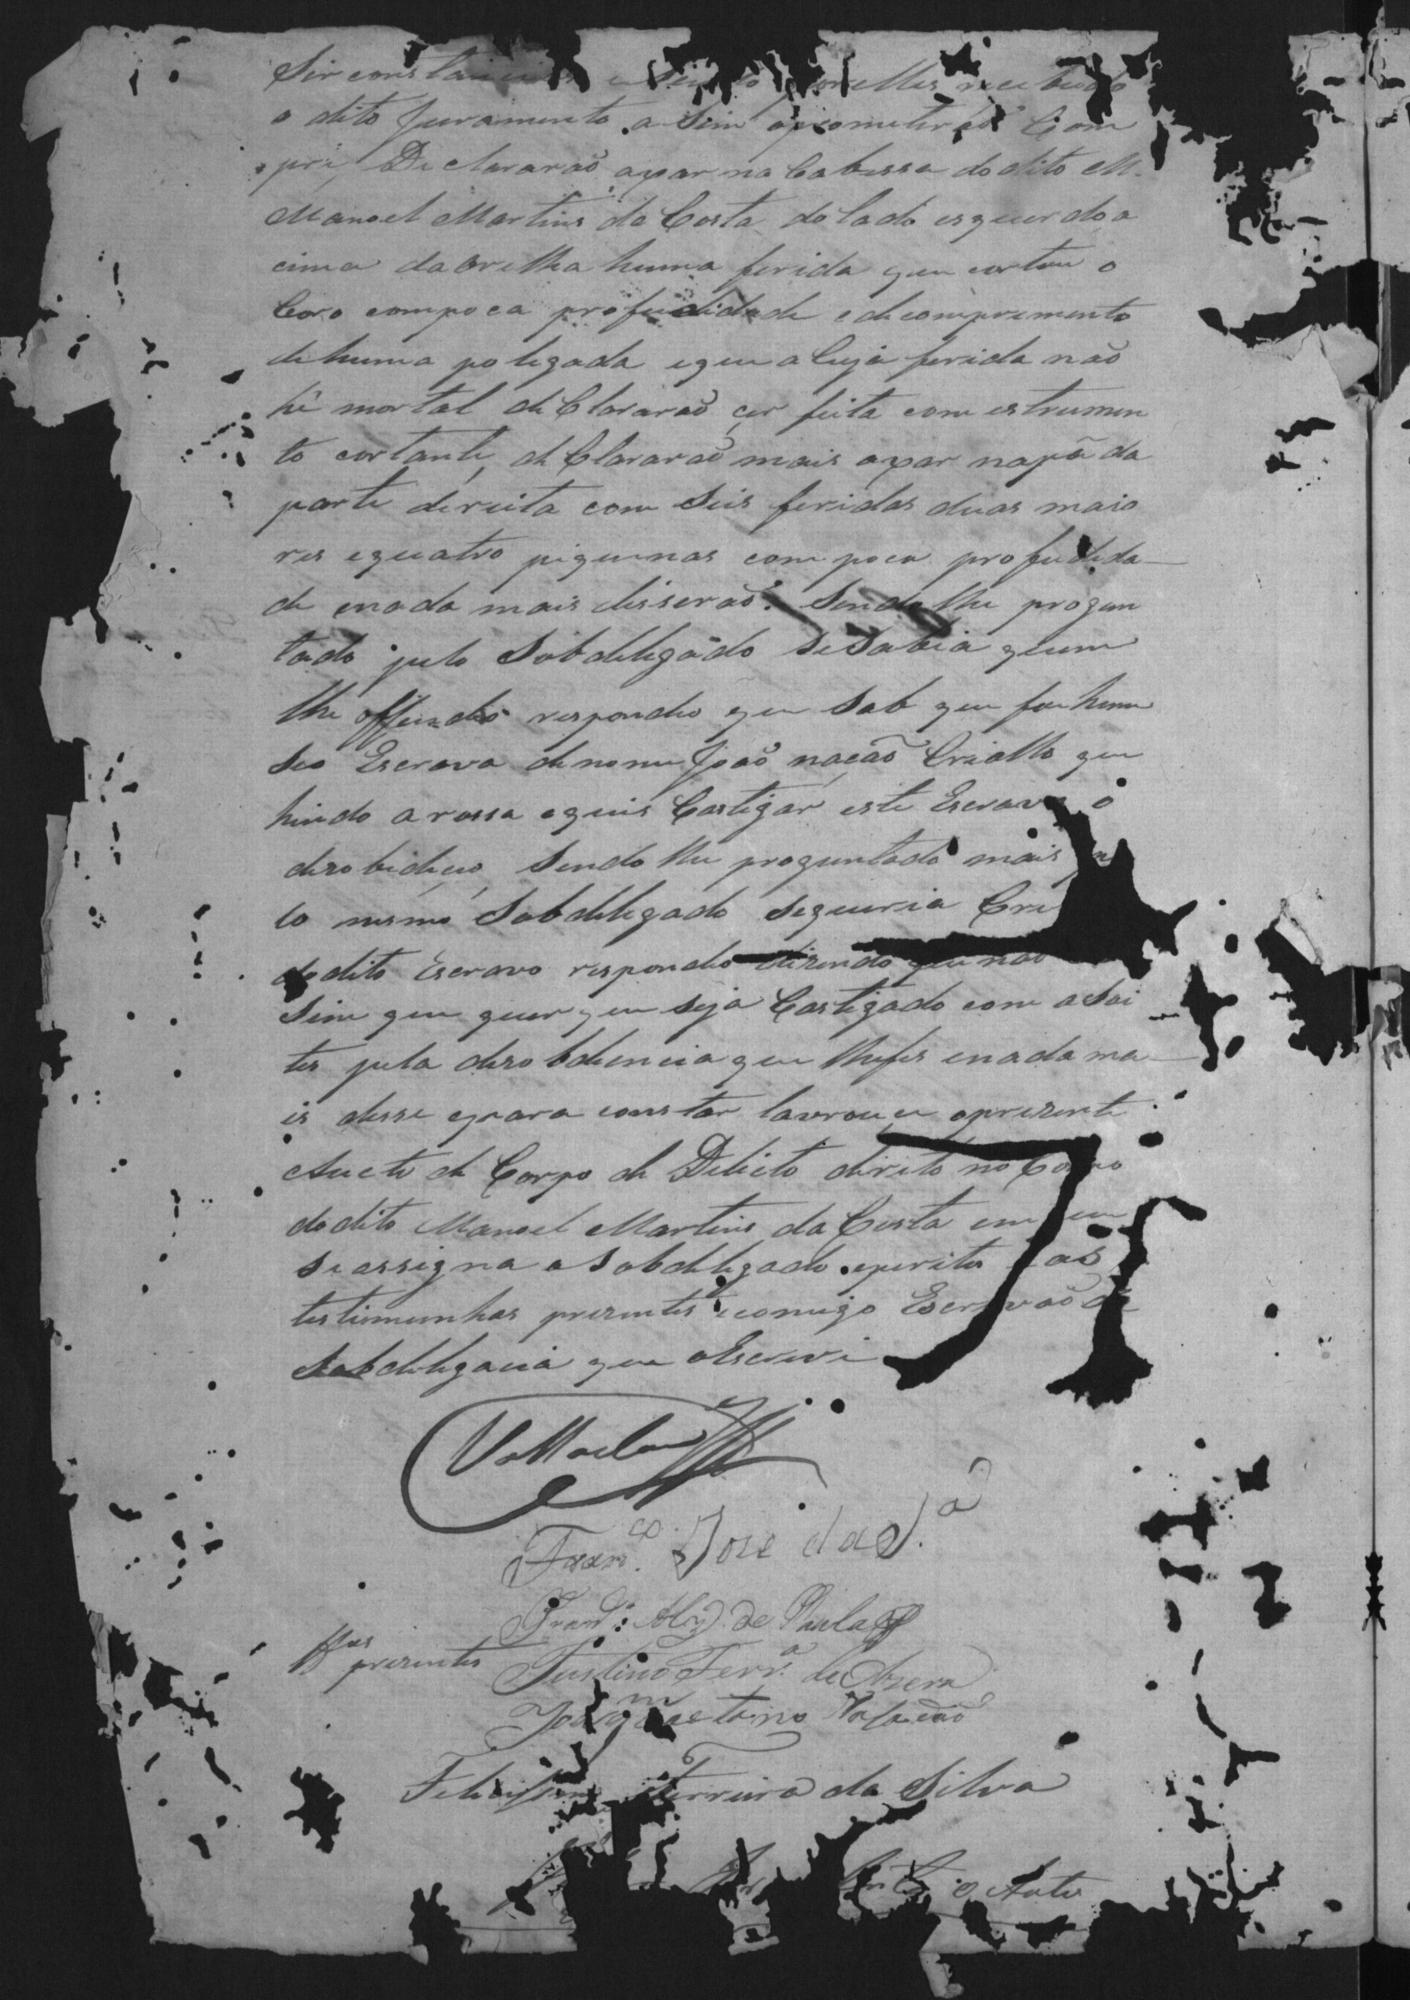 Sirconstancias e sendo por elles recebido
o dito juramento a sim o prometerão Com
prir, De Clararão axar na Cabessa do dito M.
Manoel Martins da Costa do lado esquerdo a
cima da orelha huma ferida que cortou o
Coro com poca profudidade e de comprimento
de huma polegada e que a Cuja ferida não
hé mortal de Clararão cer feita com estrumen
to cortante, de Clararão mais axar na pá da
parte dereita com seis feridas duas maio
res e quatro piquenas com poca profudida
de e nada mais disserão. Sendo lhe progun
tado pelo Subdelegado se Sabia quem
lhe offendeo respondeo que Sab que foi hum
seo Escravo de nome João nação Criollo que
hindo a rossa e quis Castigar este Escravo o
desobideceo, Sendo lhe proguntado mais
lo mesmo Subdelegado se queria
do dito Escravo respondeo dizendo que não
Sim que quer que seja Castigado com asoi
tes pela desobdiencia que lhe fes e nada ma
is disse e para constar lavrou-se o prezente
Aucto de Corpo de Delicto direto no Corpo
do dito Manoel Martins da Costa em que
se assigna o Subdelegado e peritos e as
testimunhas prezentes e comigo Escrivão da
Subdelegacia que o Escrevi
Fran.co José da S.a
de Paula
Tas prezentes Justino Ferr.a de
Joaqm Caetano
Ferreira da Silva